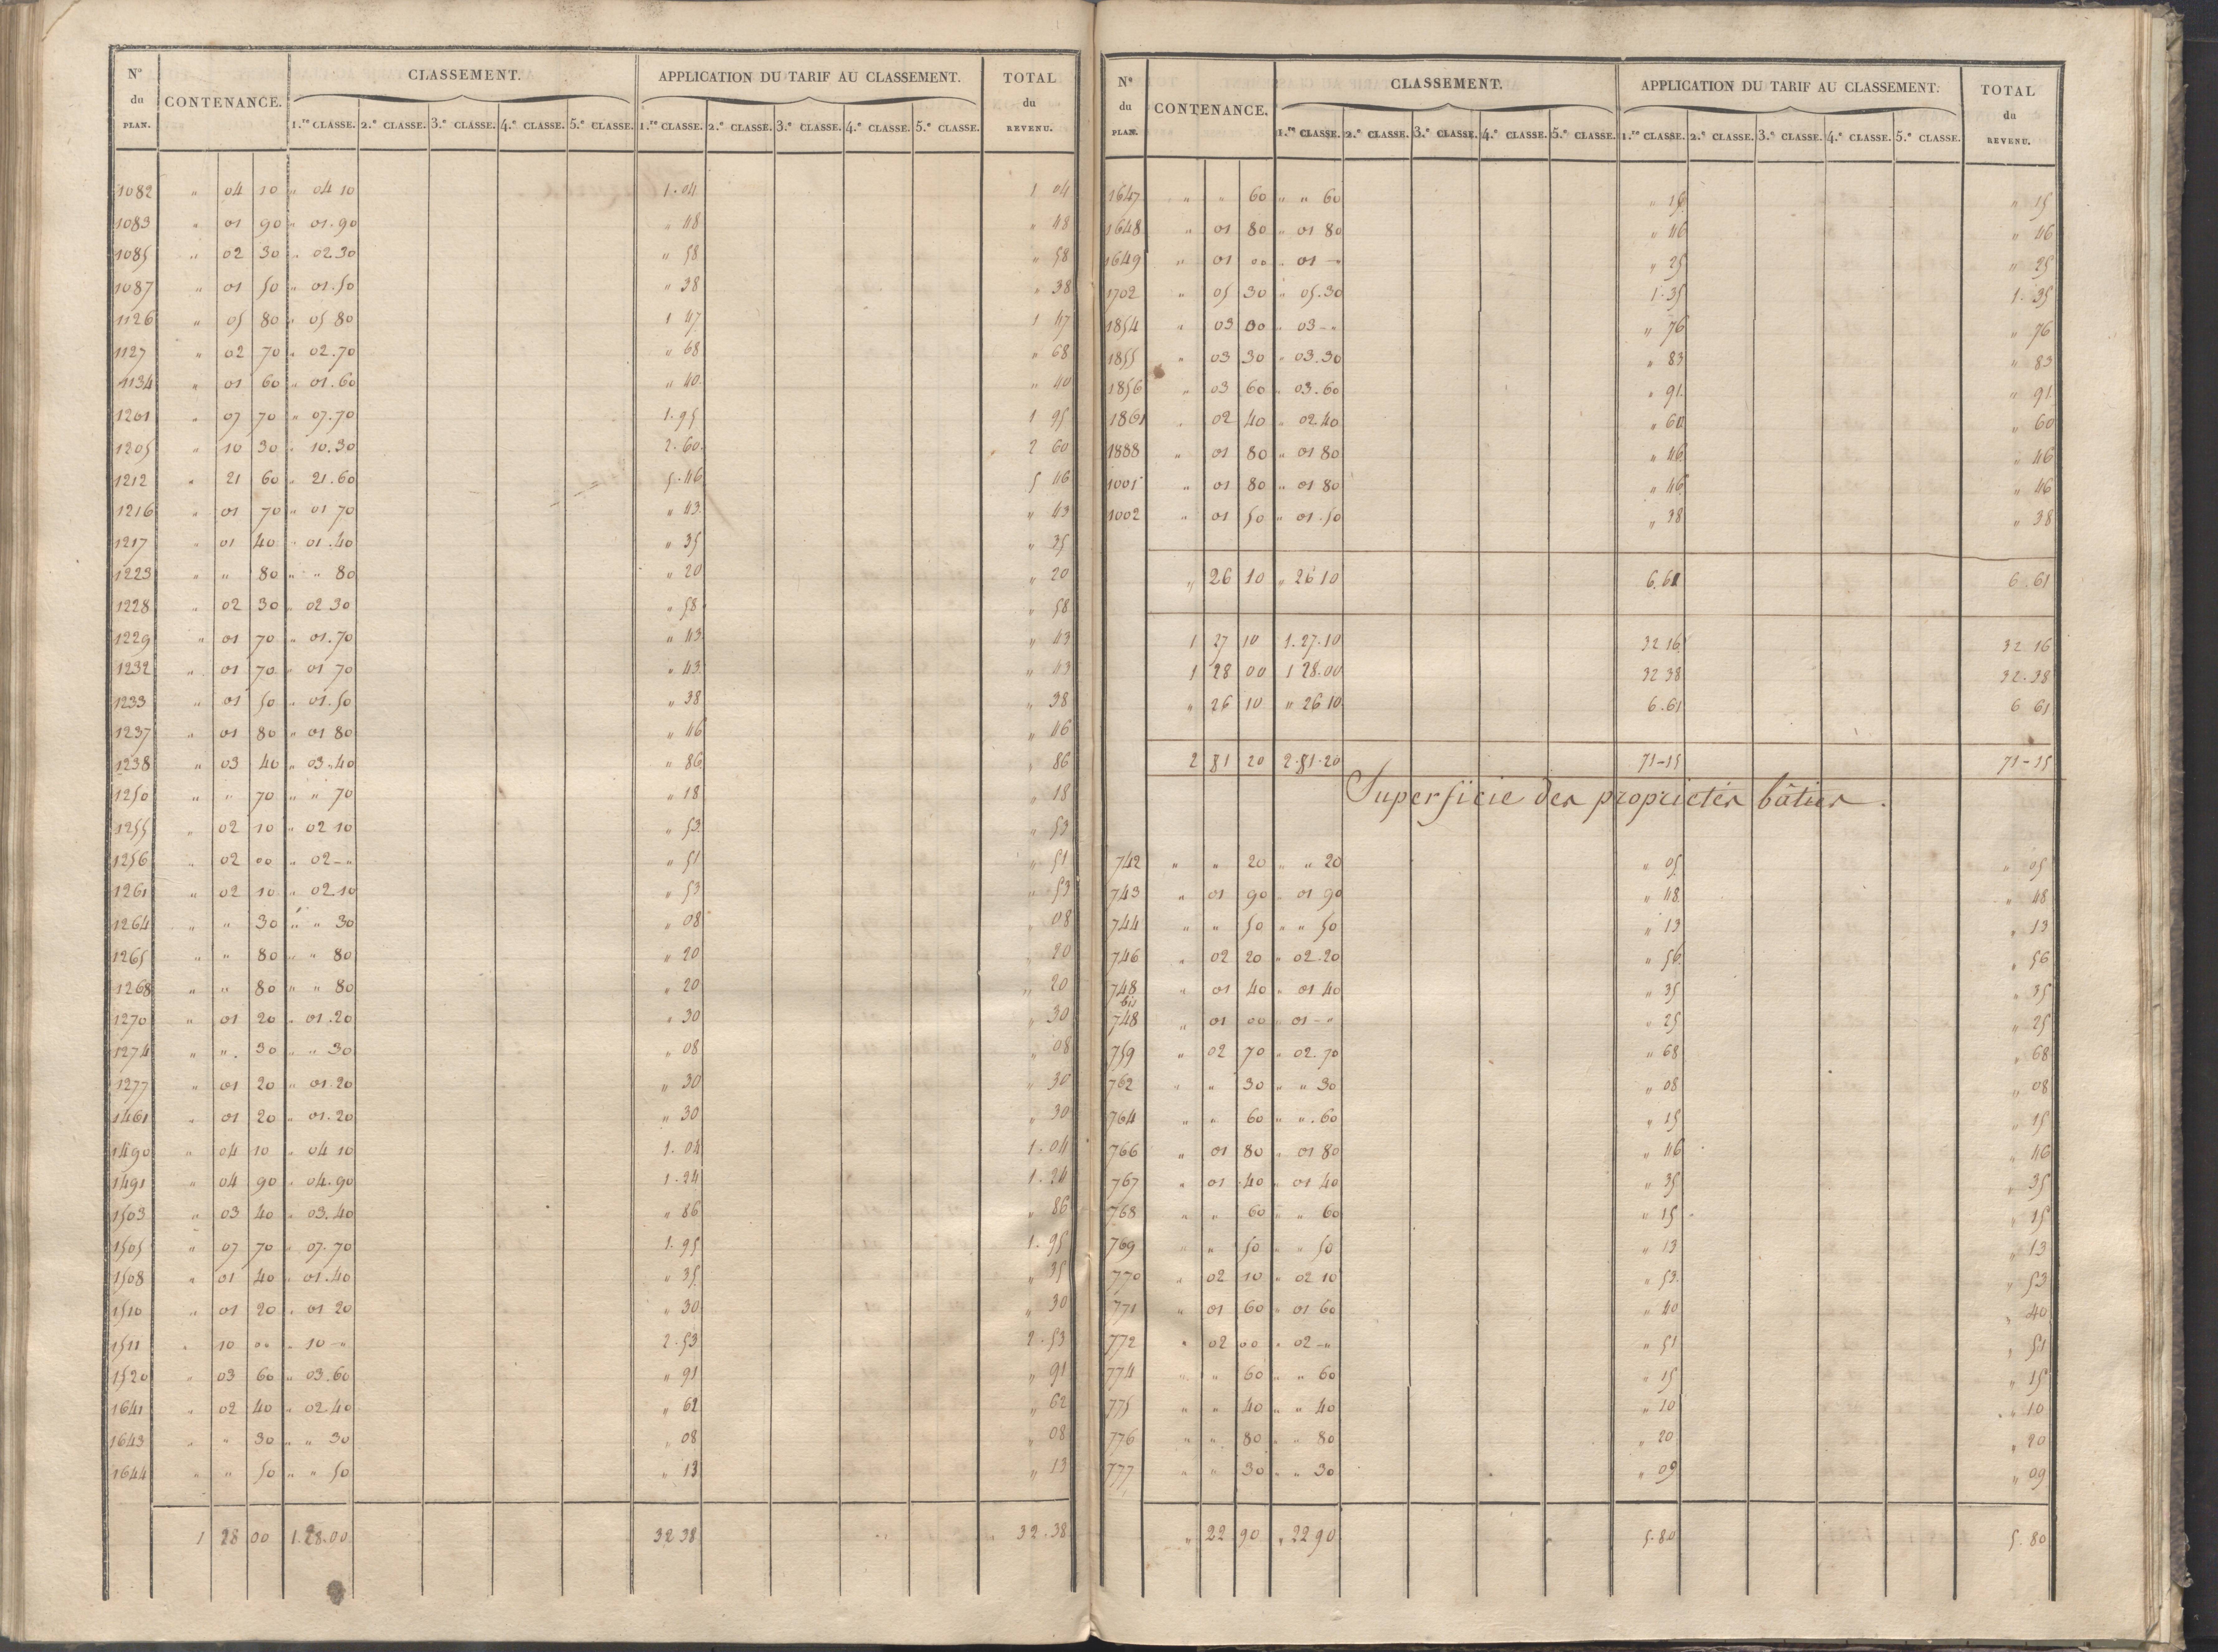 N° du PLAN. CONTENANCE. CLASSEMENT. APPLICATION DU TARIF AU CLASSEMENT. TOTAL du REVENU.
1.re CLASSE. 2.e CLASSE. 3.e CLASSE. 4.e CLASSE. 5.e CLASSE. 1.re CLASSE. 2.e CLASSE. 3.e CLASSE. 4.e CLASSE. 5.e CLASSE.
1082 " 04 10 " 04 10 1.04 1 04
1083 " 01 90 " 01.90 " 48 " 48
1085 " 02 30 " 02.30 " 58 " 58
1087 " 01 50 " 01.50 " 38 " 38
1126 " 05 80 " 05 80 1 47 1 47
1127 " 02 70 " 02.70 " 68 " 68
1134 " 01 60 " 01.60 " 40 " 40
1201 " 07 70 " 07.70 1.95 1 95
1205 " 10 30 " 10.30 2.60 2 60
1212 " 21 60 " 21.60 5.46 5 46
1216 " 01 70 " 01 70 " 43 " 43
1217 " 01 40 " 01.40 " 35 " 35
1223 " " 80 " " 80 " 20 " 20
1228 " 02 30 " 02 30 " 58 " 58
1229 " 01 70 " 01.70 " 43 " 43
1232 " 01 70 " 01 70 " 43 " 43
1233 " 01 50 " 01.50 " 38 " 38
1237 " 01 80 " 01 80 " 46 " 46
1238 " 03 40 " 03.40 " 86 " 86
1250 " " 70 " " 70 " 18 " 18
1255 " 02 10 " 02 10 " 53 " 53
1256 " 02 00 " 02-" " 51 " 51
1261 " 02 10 " 02 10 " 53 " 53
1264 " " 30 " " 30 " 08 " 08
1265 " " 80 " " 80 " 20 " 20
1268 " " 80 " " 80 " 20 " 20
1270 " 01 20 " 01.20 " 30 " 30
1274 " " 30 " " 30 " 08 " 08
1277 " 01 20 " 01.20 " 30 " 30
1461 " 01 20 " 01.20 " 30 " 30
1490 " 04 10 " 04 10 1.04 1.04
1491 " 04 90 " 04.90 1.24 1.24
1503 " 03 40 " 03.40 " 86 " 86
1505 " 07 70 " 07.70 1.95 1.95
1508 " 01 40 " 01.40 " 35 " 35
1510 " 01 20 " 01 20 " 30 " 30
1511 " 10 00 " 10-" 2.53 2.53
1520 " 03 60 " 03.60 " 91 " 91
1641 " 02 40 " 02.40 " 62 " 62
1643 " " 30 " " 30 " 08 " 08
1644 " " 50 " " 50 " 13 " 13
1 28 00 1.28.00 32 38 32.38
N° du PLAN. CONTENANCE. CLASSEMENT. APPLICATION DU TARIF AU CLASSEMENT. TOTAL du REVENU.
1.re CLASSE. 2.e CLASSE. 3.e CLASSE. 4.e CLASSE. 5.e CLASSE. 1.re CLASSE. 2.e CLASSE. 3.e CLASSE. 4.e CLASSE. 5.e CLASSE.
1647 " " 60 " " 60 " 15 " 15
1648 " 01 80 " 01 80 " 46 " 46
1649 " 01 00 " 01 -" " 25 " 25
1702 " 05 30 " 05.30 1.35 1.35
1854 " 03 00 " 03-" " 76 " 76
1855 " 03 30 " 03.30 " 83 " 83
1856 " 03 60 " 03.60 " 91 " 91
1861 " 02 40 " 02.40 " 60 " 60
1888 " 01 80 " 01 80 " 46 " 46
1001 " 01 80 " 01 80 " 46 " 46
1002 " 01 50 " 01.50 " 38 " 38
" 26 10 " 26 10 6.61 6.61
1 27 10 1.27.10 32 16 32 16
1 28 00 1 28.00 32 38 32.38
" 26 10 " 26 10 6.61 6 61
2 81 20 2.81.20 71-15 71-15
Superficie des propriétés bâties.
742 " " 20 " " 20 " 05 " 05
743 " 01 90 " 01 90 " 48 " 48
744 " " 50 " " 50 " 13 " 13
746 " 02 20 " 02.20 " 56 " 56
748 " 01 40 " 01 40 " 35 " 35
bis
748 " 01 00 " 01-" " 25 " 25
759 " 02 70 " 02.70 " 68 " 68
762 " " 30 " " 30 " 08 " 08
764 " " 60 " " 60 " 15 " 15
766 " 01 80 " 01 80 " 46 " 46
767 " 01 40 " 01 40 " 35 " 35
768 " " 60 " " 60 " 15 " 15
769 " " 50 " " 50 " 13 " 13
770 " 02 10 " 02 10 " 53 " 53
771 " 01 60 " 01 60 " 40 " 40
772 " 02 00 " 02-" " 51 " 51
774 " " 60 " " 60 " 15 " 15
775 " " 40 " " 40 " 10 " 10
776 " " 80 " " 80 " 20 " 20
777 " " 30 " " 30 " 09 " 09
" 22 90 " 22 90 5.80 5.80